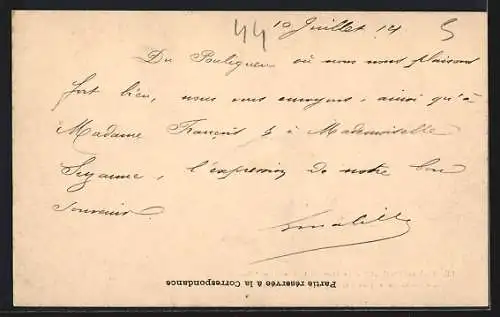 44
10 Juillet 14
5
Du Pouliguen où nous nous plaisons
fort bien, nous vous envoyons, ainsi qu'à
Madame François & à Mademoiselle
Suzanne, l'expression de notre bon
souvenir.
Partie réservée à la Correspondance